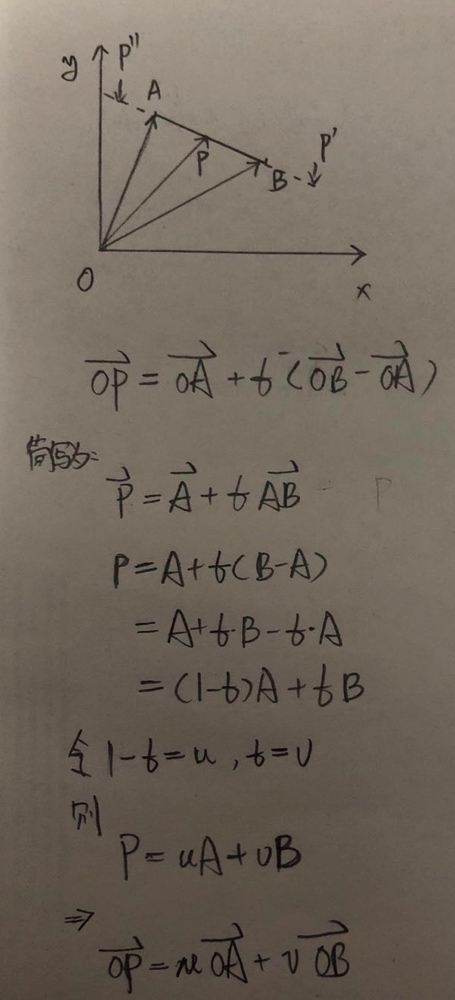 y P''
A
P'
P
B
O
x
\overrightarrow{OP} = \overrightarrow{OA} + t·(\overrightarrow{OB} - \overrightarrow{OA})
简写为:
\vec{P} = \vec{A} + t\overrightarrow{AB}
P = A + t(B-A)
= A + t·B - t·A
= (1-t)A + tB
令 1-t = u, t = v
则
P = uA + vB
⇒
\overrightarrow{OP} = u\overrightarrow{OA} + v\overrightarrow{OB}